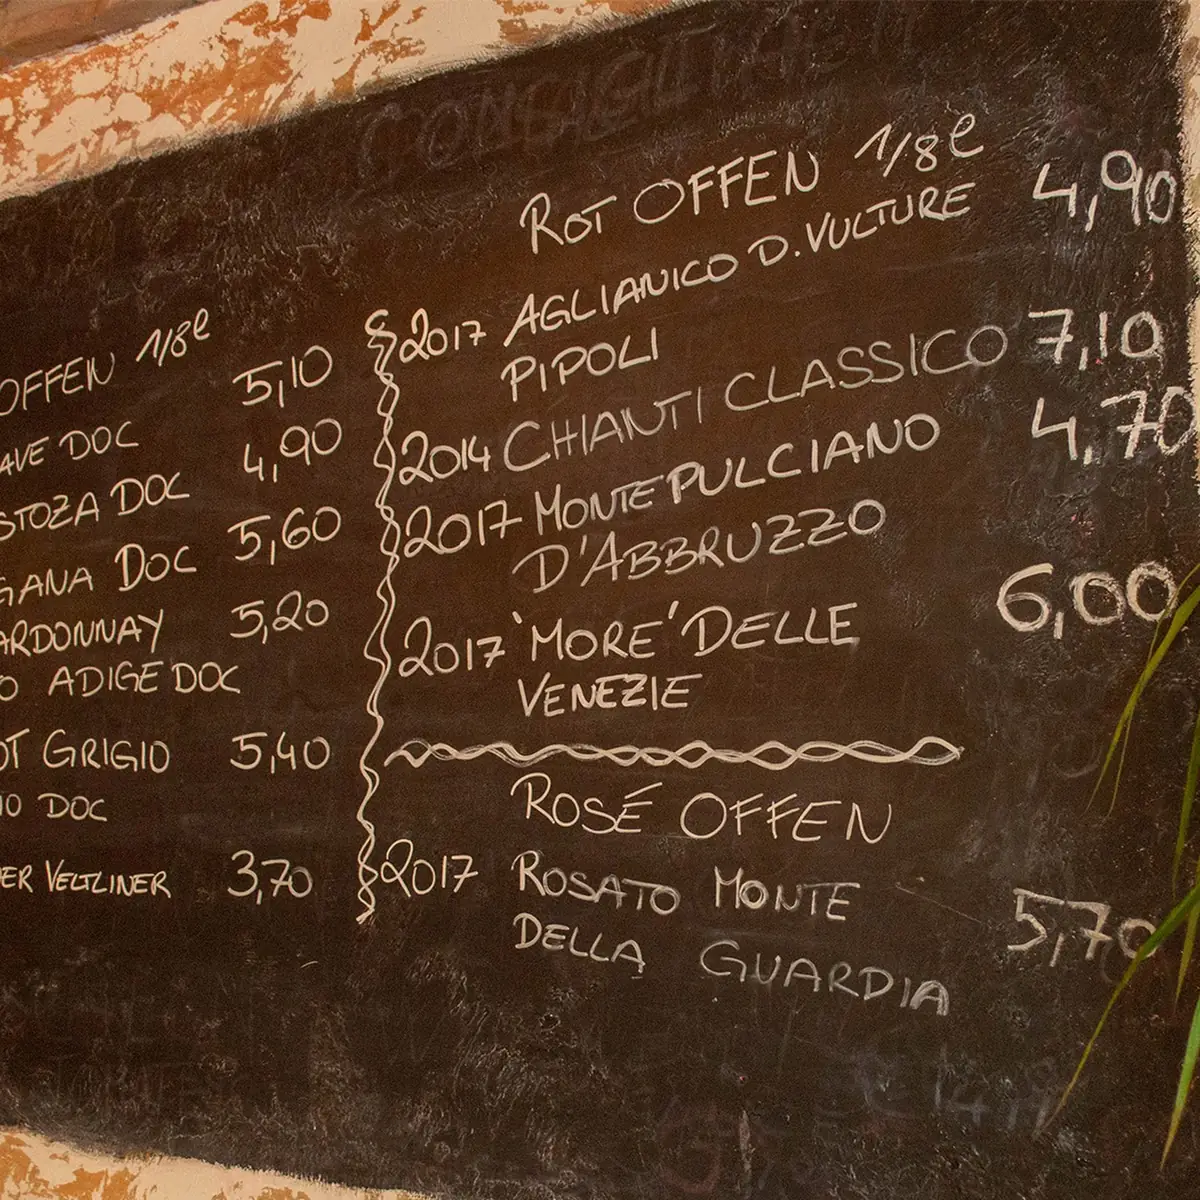 OFFEN 1/8 l
AVE DOC 5,10
STOZA DOC 4,90
GANA DOC 5,60
ARDONNAY 5,20
O ADIGE DOC
OT GRIGIO 5,40
IO DOC
ER VELTLINER 3,70
ROT OFFEN 1/8 l
2017 AGLIANICO D. VULTURE 4,90
PIPOLI
2014 CHIANTI CLASSICO 7,10
2017 MONTEPULCIANO 4,70
D'ABBRUZZO
2017 'MORE' DELLE 6,00
VENEZIE
ROSÉ OFFEN
2017 ROSATO MONTE 5,70
DELLA GUARDIA